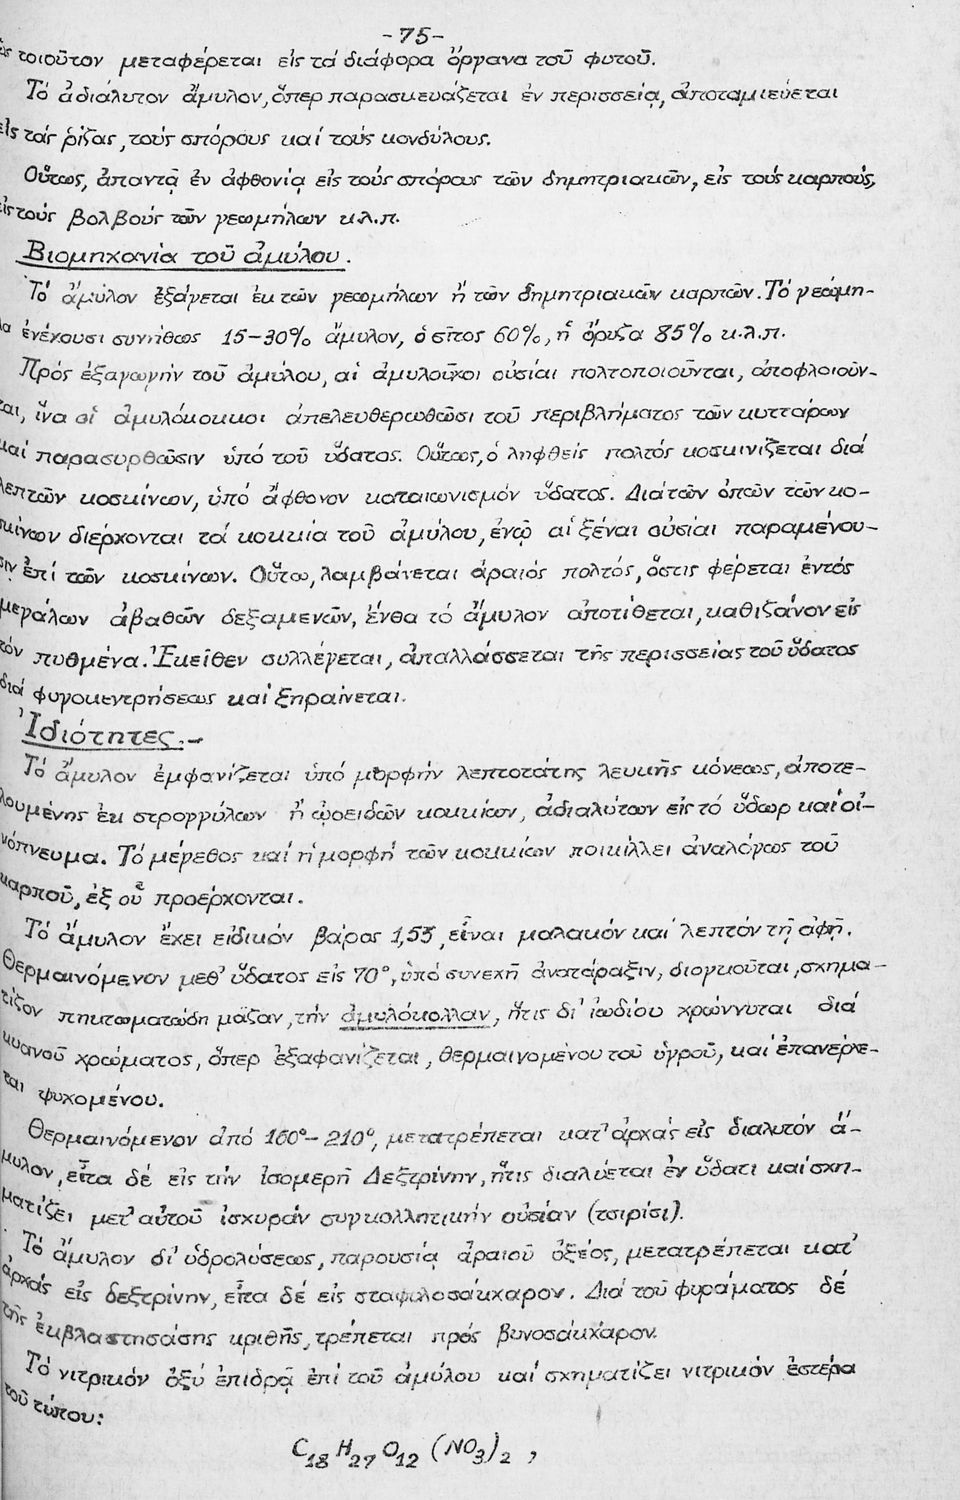 -75-
ὡς τοιοῦτον μεταφέρεται εἰς τά διάφορα ὄργανα τοῦ φυτοῦ.
Τό ἀδιάλυτον ἄμυλον, ὅπερ παρασκευάζεται ἐν περισσείᾳ, ἀποταμιεύεται
εἰς τάς ῥίζας, τούς σπόρους καί τούς κονδύλους.
Οὕτως, ἀπαντᾷ ἐν ἀφθονίᾳ εἰς τούς σπόρους τῶν δημητριακῶν, εἰς τούς καρπούς,
εἰς τούς βολβούς τῶν γεωμήλων κ.λ.π.
Βιομηχανία τοῦ ἀμύλου.
Τό ἄμυλον ἐξάγεται ἐκ τῶν γεωμήλων ἤ τῶν δημητριακῶν καρπῶν. Τό γεώμη-
λα ἐνέχουσι συνήθως 15-30% ἄμυλον, ὁ σῖτος 60%, ἡ ὄρυζα 85% κ.λ.π.
Πρός ἐξαγωγήν τοῦ ἀμύλου, αἱ ἀμυλοῦχοι οὐσίαι πολτοποιοῦνται, ἀποφλοιοῦν-
ται, ἵνα οἱ ἀμυλόκοκκοι ἀπελευθερωθῶσι τοῦ περιβλήματος τῶν κυττάρων
καί παρασυρθῶσιν ὑπό τοῦ ὕδατος. Οὕτως, ὁ ληφθείς πολτός κοσκινίζεται διά
λεπτῶν κοσκίνων, ὑπό ἄφθονον καταιωνισμόν ὕδατος. Διά τῶν ὀπῶν τῶν κο-
σκίνων διέρχονται τά κοκκία τοῦ ἀμύλου, ἐνῷ αἱ ξέναι οὐσίαι παραμένου-
σιν ἐπί τῶν κοσκίνων. Οὕτω, λαμβάνεται ἀραιός πολτός, ὅστις φέρεται ἐντός
μεγάλων ἀβαθῶν δεξαμενῶν, ἔνθα τό ἄμυλον ἀποτίθεται, καθιζάνον εἰς
τόν πυθμένα. Ἐκεῖθεν συλλέγεται, ἀπαλλάσσεται τῆς περισσείας τοῦ ὕδατος
διά φυγοκεντρήσεως καί ξηραίνεται.
Ἰδιότητες.-
Τό ἄμυλον ἐμφανίζεται ὑπό μορφήν λεπτοτάτης λευκῆς κόνεως, ἀποτε-
λουμένης ἐκ στρογγύλων ἤ ᾠοειδῶν κοκκίων, ἀδιαλύτων εἰς τό ὕδωρ καί οἰ-
νόπνευμα. Τό μέγεθος καί ἡ μορφή τῶν κοκκίων ποικίλλει ἀναλόγως τοῦ
καρποῦ, ἐξ οὗ προέρχονται.
Τό ἄμυλον ἔχει εἰδικόν βάρος 1,53, εἶναι μαλακόν καί λεπτόν τῇ ἀφῇ.
Θερμαινόμενον μεθ' ὕδατος εἰς 70°, ὑπό συνεχῆ ἀνατάραξιν, διογκοῦται, σχημα-
τίζον πηκτωματώδη μᾶζαν, τήν ἀμυλόκολλαν, ἥτις δι' ἰωδίου χρώννυται διά
κυανοῦ χρώματος, ὅπερ ἐξαφανίζεται, θερμαινομένου τοῦ ὑγροῦ, καί ἐπανέρχε-
ται ψυχομένου.
Θερμαινόμενον ἀπό 160°-210°, μετατρέπεται κατ' ἀρχάς εἰς διαλυτόν ἄ-
μυλον, εἶτα δέ εἰς τήν ἰσομερῆ Δεξτρίνην, ἥτις διαλύεται ἐν ὕδατι καί σχη-
ματίζει μετ' αὐτοῦ ἰσχυράν συγκολλητικήν οὐσίαν (τσιρίσι).
Τό ἄμυλον δι' ὑδρολύσεως, παρουσίᾳ ἀραιοῦ ὀξέος, μετατρέπεται κατ'
ἀρχάς εἰς δεξτρίνην, εἶτα δέ εἰς σταφυλοσάκχαρον. Διά τοῦ φυράματος δέ
τῆς ἐκβλαστησάσης κριθῆς, τρέπεται πρός βυνοσάκχαρον.
Τό νιτρικόν ὀξύ ἐπιδρᾷ ἐπί τοῦ ἀμύλου καί σχηματίζει νιτρικόν ἐστέρα
τοῦ τύπου:
C18 H27 O12 (NO3)2 ,